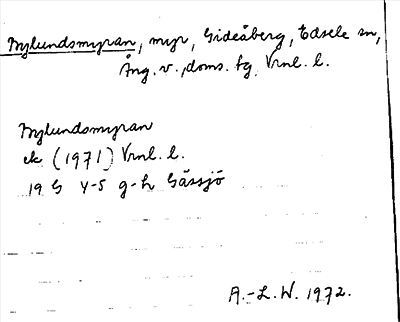 Nylundsmyran, myr, Gideåberg, Edsele sn,
Ång. v., doms. tg, Vrnl. l.
Nylundsmyran
ek (1971) Vrnl. l.
19 G y-5 g-h Gåssjö
A.-L. W. 1972.